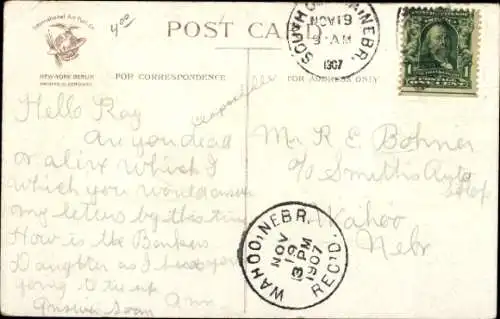 International Art Pub. Co.
NEW-YORK-BERLIN
4.00
POST CARD
SOUTH OMAHA, NEBR.
NOV 19
1907
ONE CENT
FOR CORRESPONDENCE
FOR ADDRESS ONLY
Hello Ray
Are you dead
or alive which I
which you would answer
my letters by this time
How is the Bankers
Daughter as I hear you
going to tie up
Answer soon Ann
Mr R E Bohner
c/o Smiths Auto
Shop
Wahoo
Nebr
WAHOO, NEBR.
NOV
19
3 PM
1907
REC'D.